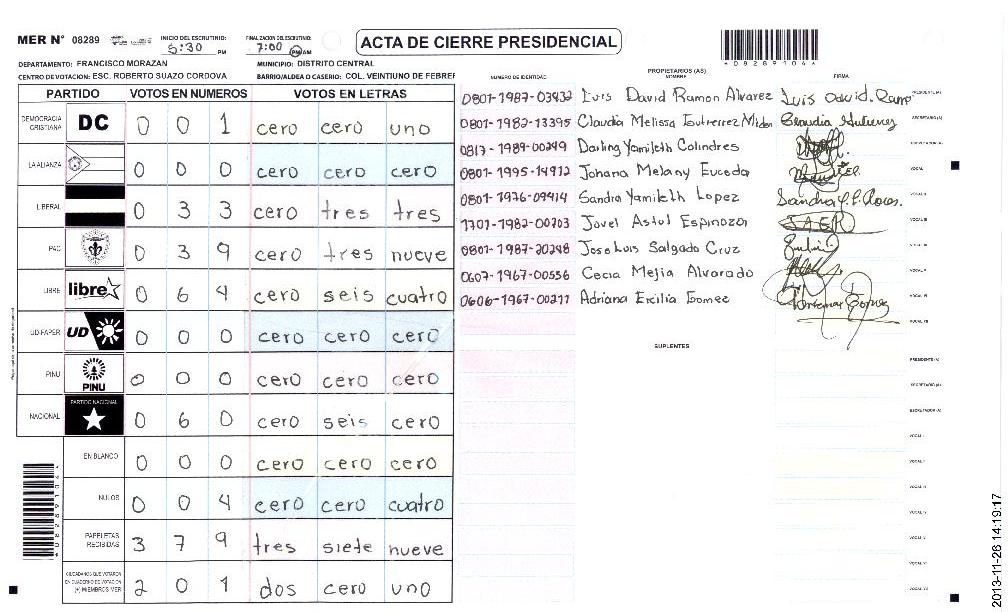 MER N° 08289
INICIO DEL ESCRUTINIO: 5:30 PM
FINALIZACION DEL ESCRUTINIO: 7:00 PM AM
ACTA DE CIERRE PRESIDENCIAL
DEPARTAMENTO: FRANCISCO MORAZAN
MUNICIPIO: DISTRITO CENTRAL
CENTRO DE VOTACION: ESC. ROBERTO SUAZO CORDOVA
BARRIO/ALDEA O CASERIO: COL. VEINTIUNO DE FEBRER
PARTIDO VOTOS EN NUMEROS VOTOS EN LETRAS
DEMOCRACIA CRISTIANA DC 0 0 1 cero cero uno
LA ALIANZA 0 0 0 cero cero cero
LIBERAL 0 3 3 cero tres tres
PAC 0 3 9 cero tres nueve
LIBRE libre 0 6 4 cero seis cuatro
UD-FAPER UD 0 0 0 cero cero cero
PINU PINU 0 0 0 cero cero cero
NACIONAL PARTIDO NACIONAL 0 6 0 cero seis cero
EN BLANCO 0 0 0 cero cero cero
NULOS 0 0 4 cero cero cuatro
PAPELETAS RECIBIDAS 3 7 9 tres siete nueve
CIUDADANOS QUE VOTARON EN CUADERNO DE VOTACION (+) MIEMBROS MER 2 0 1 dos cero uno
*082891044
NUMERO DE IDENTIDAD
PROPIETARIOS (AS)
NOMBRE
FIRMA
0801-1987-03932 Luis David Ramon Alvarez Luis David. Ramo PRESIDENTE (A)
0801-1982-13395 Claudia Melissa Claudia Gutierrez SECRETARIO (A)
0817-1989-00249 Darling Yamileth Colindres ESCRUTADOR (A)
0801-1995-14912 Johana Melany Euceda VOCAL I
0801-1976-09414 Sandra Yamileth Lopez VOCAL II
1701-1982-00203 Jovel Astul Espinoza VOCAL III
0801-1987-20248 Jose Luis Salgado Cruz VOCAL IV
0607-1967-00556 Cecia Mejia Alvarado VOCAL V
0606-1967-00277 Adriana Ercilia Gomez VOCAL VI
VOCAL VII
SUPLENTES
PRESIDENTE (A)
SECRETARIO (A)
ESCRUTADOR (A)
VOCAL I
VOCAL II
VOCAL III
VOCAL IV
VOCAL V
VOCAL VI
VOCAL VII
2013-11-26 14:19:17